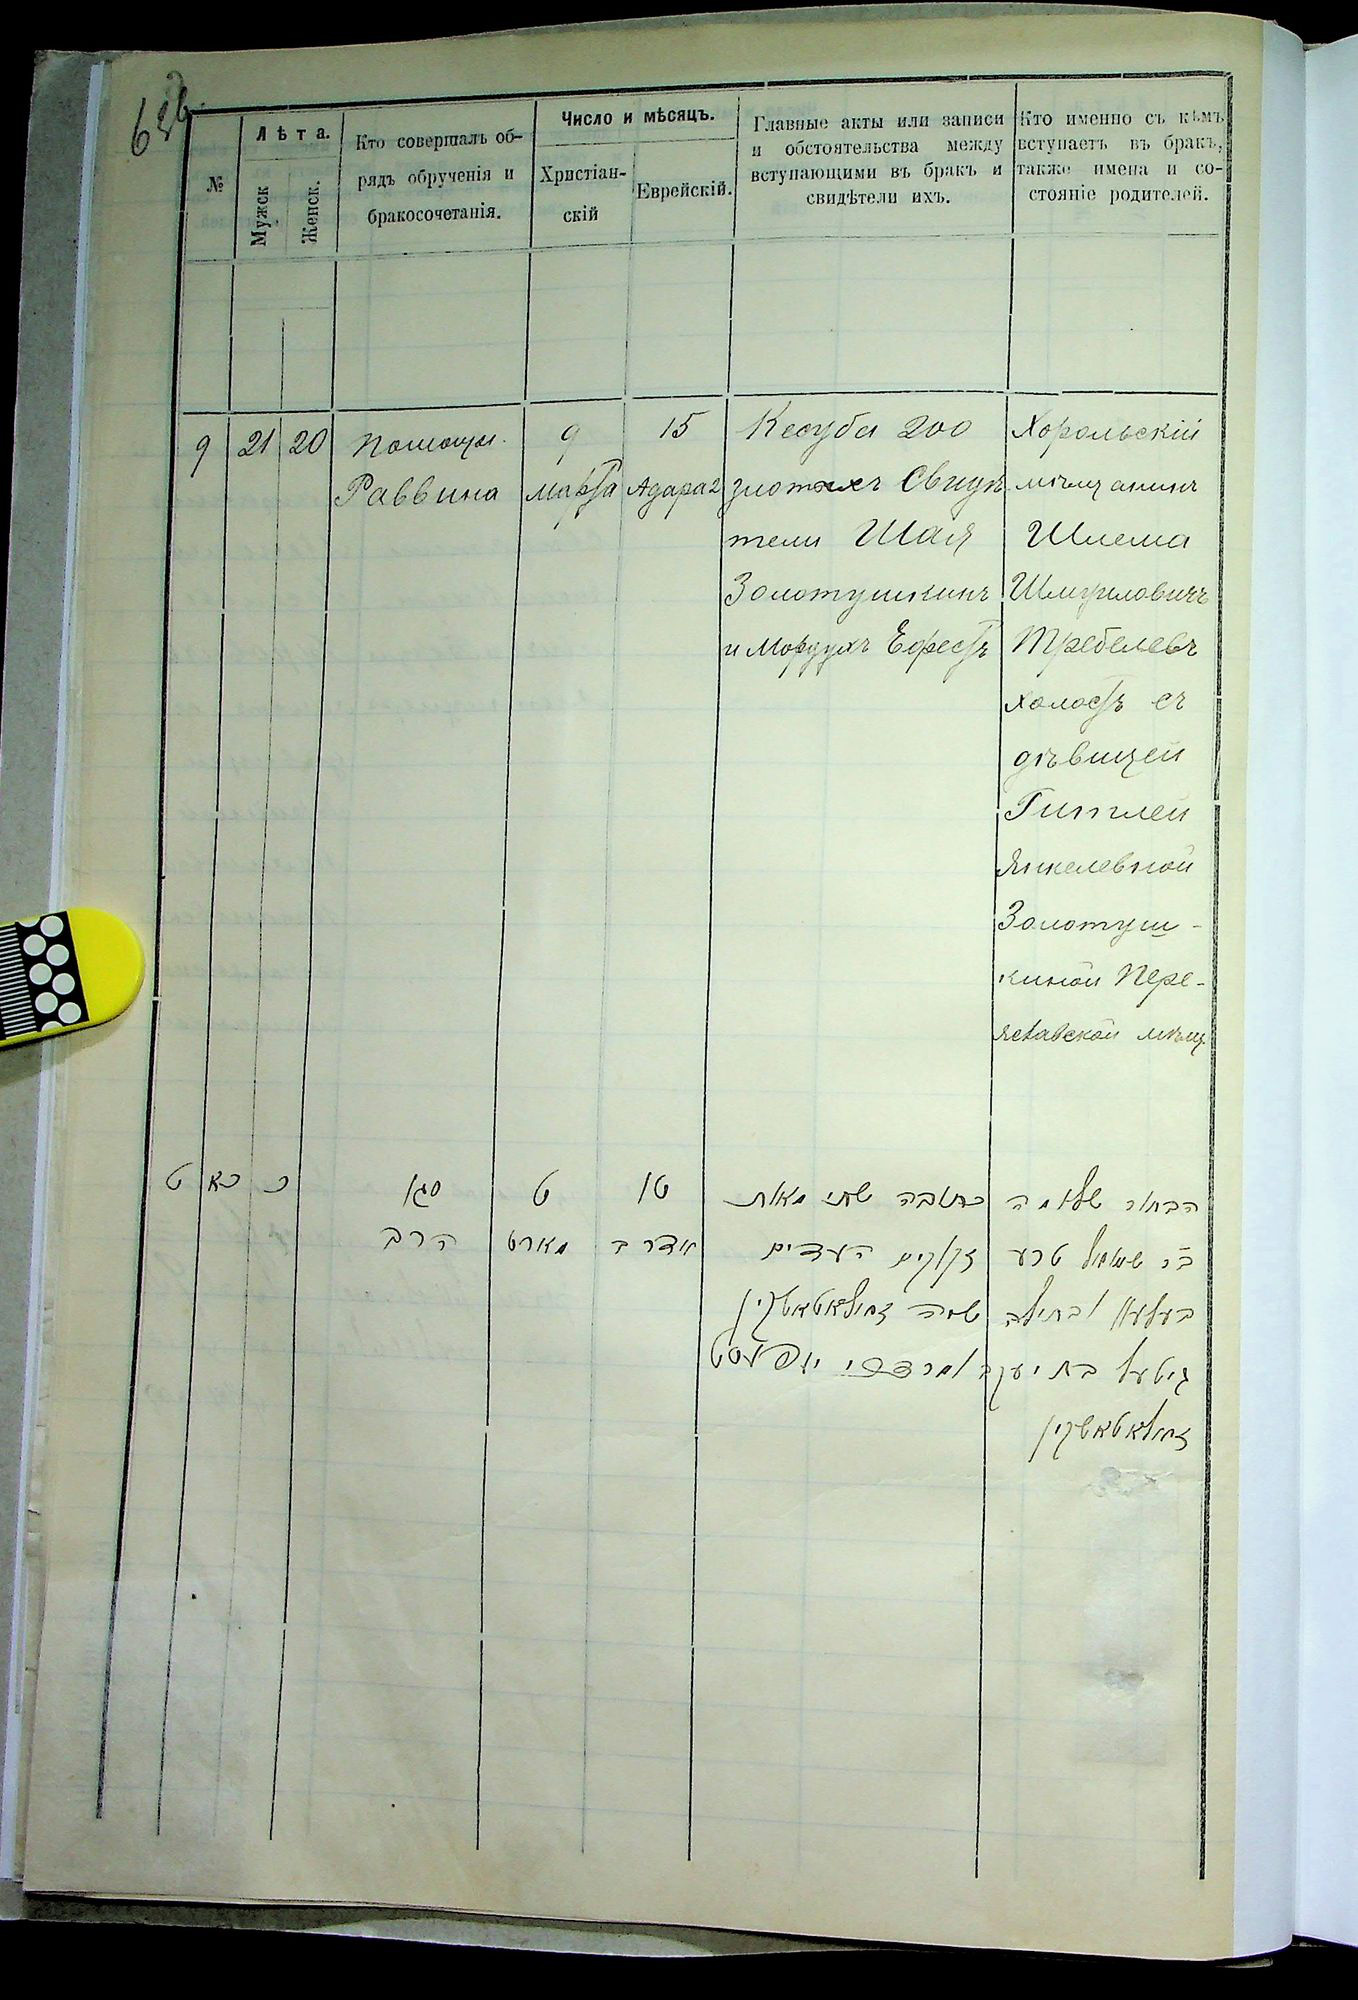 №
Лѣта.
Мужск
Женск.
Кто совершалъ об-
рядъ обрученія и
бракосочетанія.
Число и мѣсяцъ.
Христіан-
скій
Еврейскій.
Главные акты или записи
и обстоятельства между
вступающими въ бракъ и
свидѣтели ихъ.
Кто именно съ кѣмъ
вступаетъ въ бракъ,
также имена и со-
стояніе родителей.
9
21
20
Помощн.
Раввина
9
марта
15
Адара 2
Кесуба 200
злотыхъ Свидѣ
тели Шая
Золотушкинъ
и Мордухъ Ефестъ
Хорольскій
мѣщанинъ
Шлема
Шмуиловичъ
Требелевъ
холостъ съ
дѣвицей
Гитлей
Янкелевной
Золотуш-
киной Пере-
яславской мѣщ
ט
כא
כ
סגן
הרב
ט
מארט
טו
אדר ב
כתובה שתי מאות
זקוקים העדים
שעיה זאלאטאשקין
הבחור שלמה
בר שמואל טרע
בעלעוו ובתולה
גיטעל בת יעקב
זאלאטאשקין